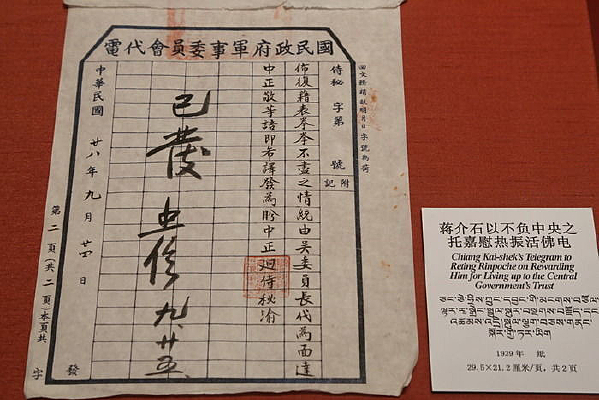 國民政府軍事委員會代電
回文務請敘明月日字號為荷
侍秘 字第 號 附記
佈復藉表拳拳不盡之情統由吳委員長代為面達
中正敬等語即希譯發為盼中正廻侍秘渝
已發 九、廿五
中華民國 廿八年九月廿四日 發
第二頁(共二頁)本頁共 字
蒋介石以不负中央之
托嘉慰热振活佛电
Chiang Kai-shek's Telegram to
Reting Rinpoche on Rewarding
Him for Living up to the Central
Government's Trust
1939年 纸
29.5×21.2厘米/页，共2页